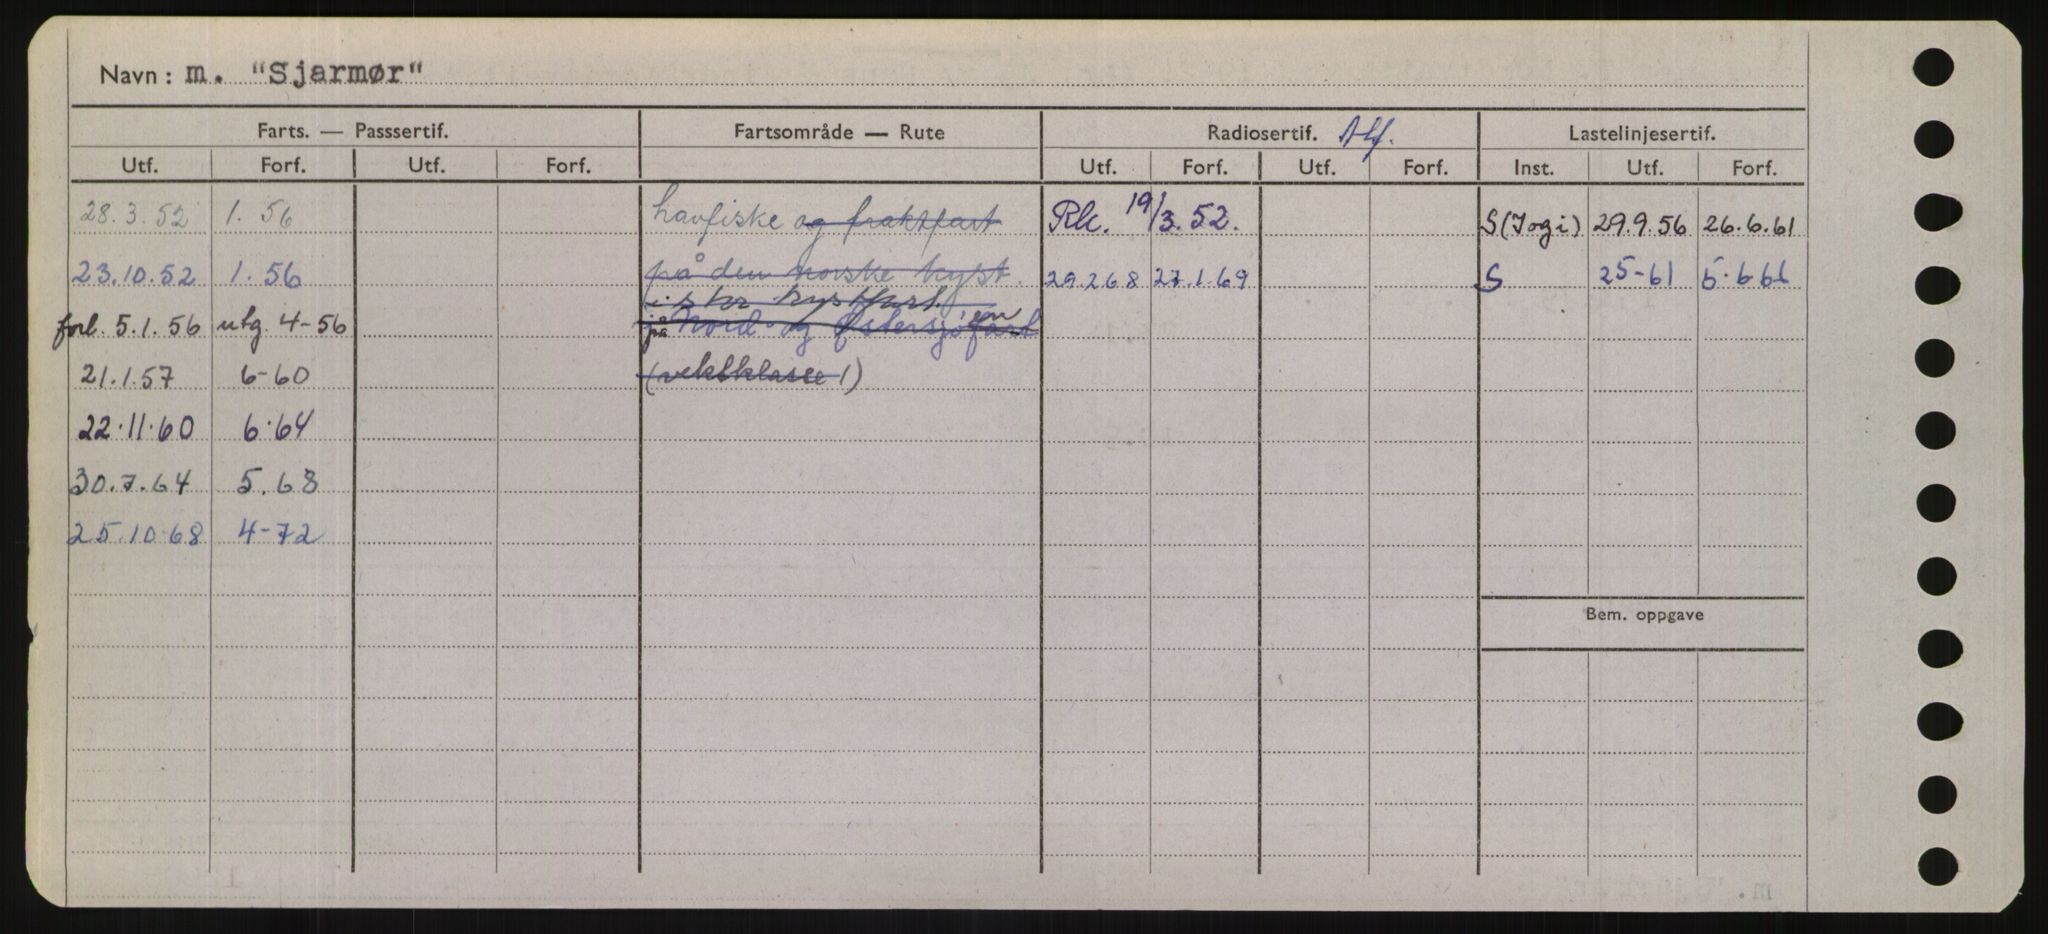 Navn: m. "Sjarmør"
Farts. — Passsertif. Fartsområde — Rute Radiosertif. Lastelinjesertif.
Utf. Forf. Utf. Forf. Utf. Forf. Utf. Forf. Inst. Utf. Forf.
28.3.52 1.56 havfiske og fraktfart Rk. 19/3.52. S 29.9.56 26.6.61
23.10.52 1.56 på den norske kyst. 29.2.68 27.1.69 S 25-61
i stor kystfart.
forl. 5.1.56 utg. 4-56 på Nord- og Østersjøfart
21.1.57 6-60 1)
22.11.60 6.64
30.7.64 5.68
25.10-68 4-72
Bem. oppgave